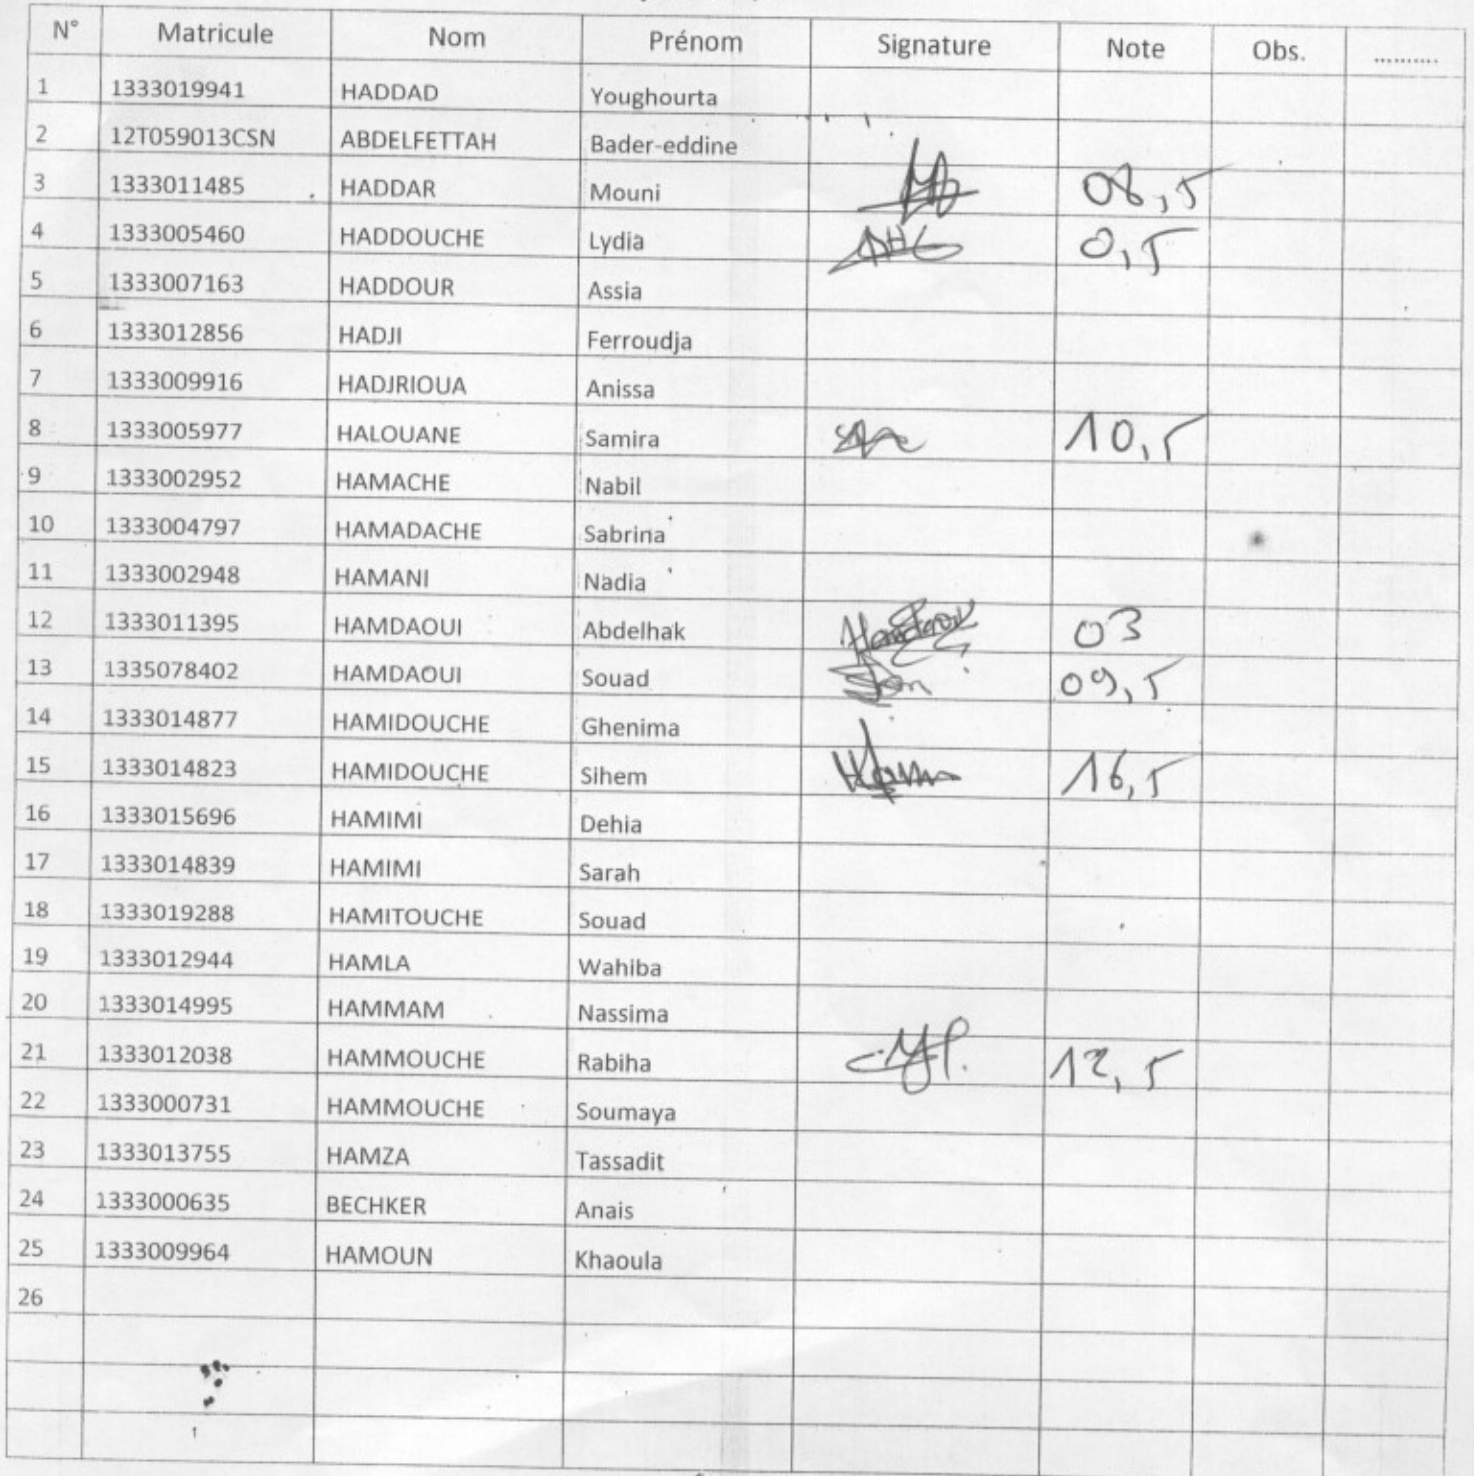 N° Matricule Nom Prénom Signature Note Obs. ..........
1 1333019941 HADDAD Youghourta
2 12T059013CSN ABDELFETTAH Bader-eddine
3 1333011485 HADDAR Mouni 08,5
4 1333005460 HADDOUCHE Lydia 0,5
5 1333007163 HADDOUR Assia
6 1333012856 HADJI Ferroudja
7 1333009916 HADJRIOUA Anissa
8 1333005977 HALOUANE Samira 10,5
9 1333002952 HAMACHE Nabil
10 1333004797 HAMADACHE Sabrina
11 1333002948 HAMANI Nadia
12 1333011395 HAMDAOUI Abdelhak 03
13 1335078402 HAMDAOUI Souad 09,5
14 1333014877 HAMIDOUCHE Ghenima
15 1333014823 HAMIDOUCHE Sihem 16,5
16 1333015696 HAMIMI Dehia
17 1333014839 HAMIMI Sarah
18 1333019288 HAMITOUCHE Souad
19 1333012944 HAMLA Wahiba
20 1333014995 HAMMAM Nassima
21 1333012038 HAMMOUCHE Rabiha 12,5
22 1333000731 HAMMOUCHE Soumaya
23 1333013755 HAMZA Tassadit
24 1333000635 BECHKER Anais
25 1333009964 HAMOUN Khaoula
26